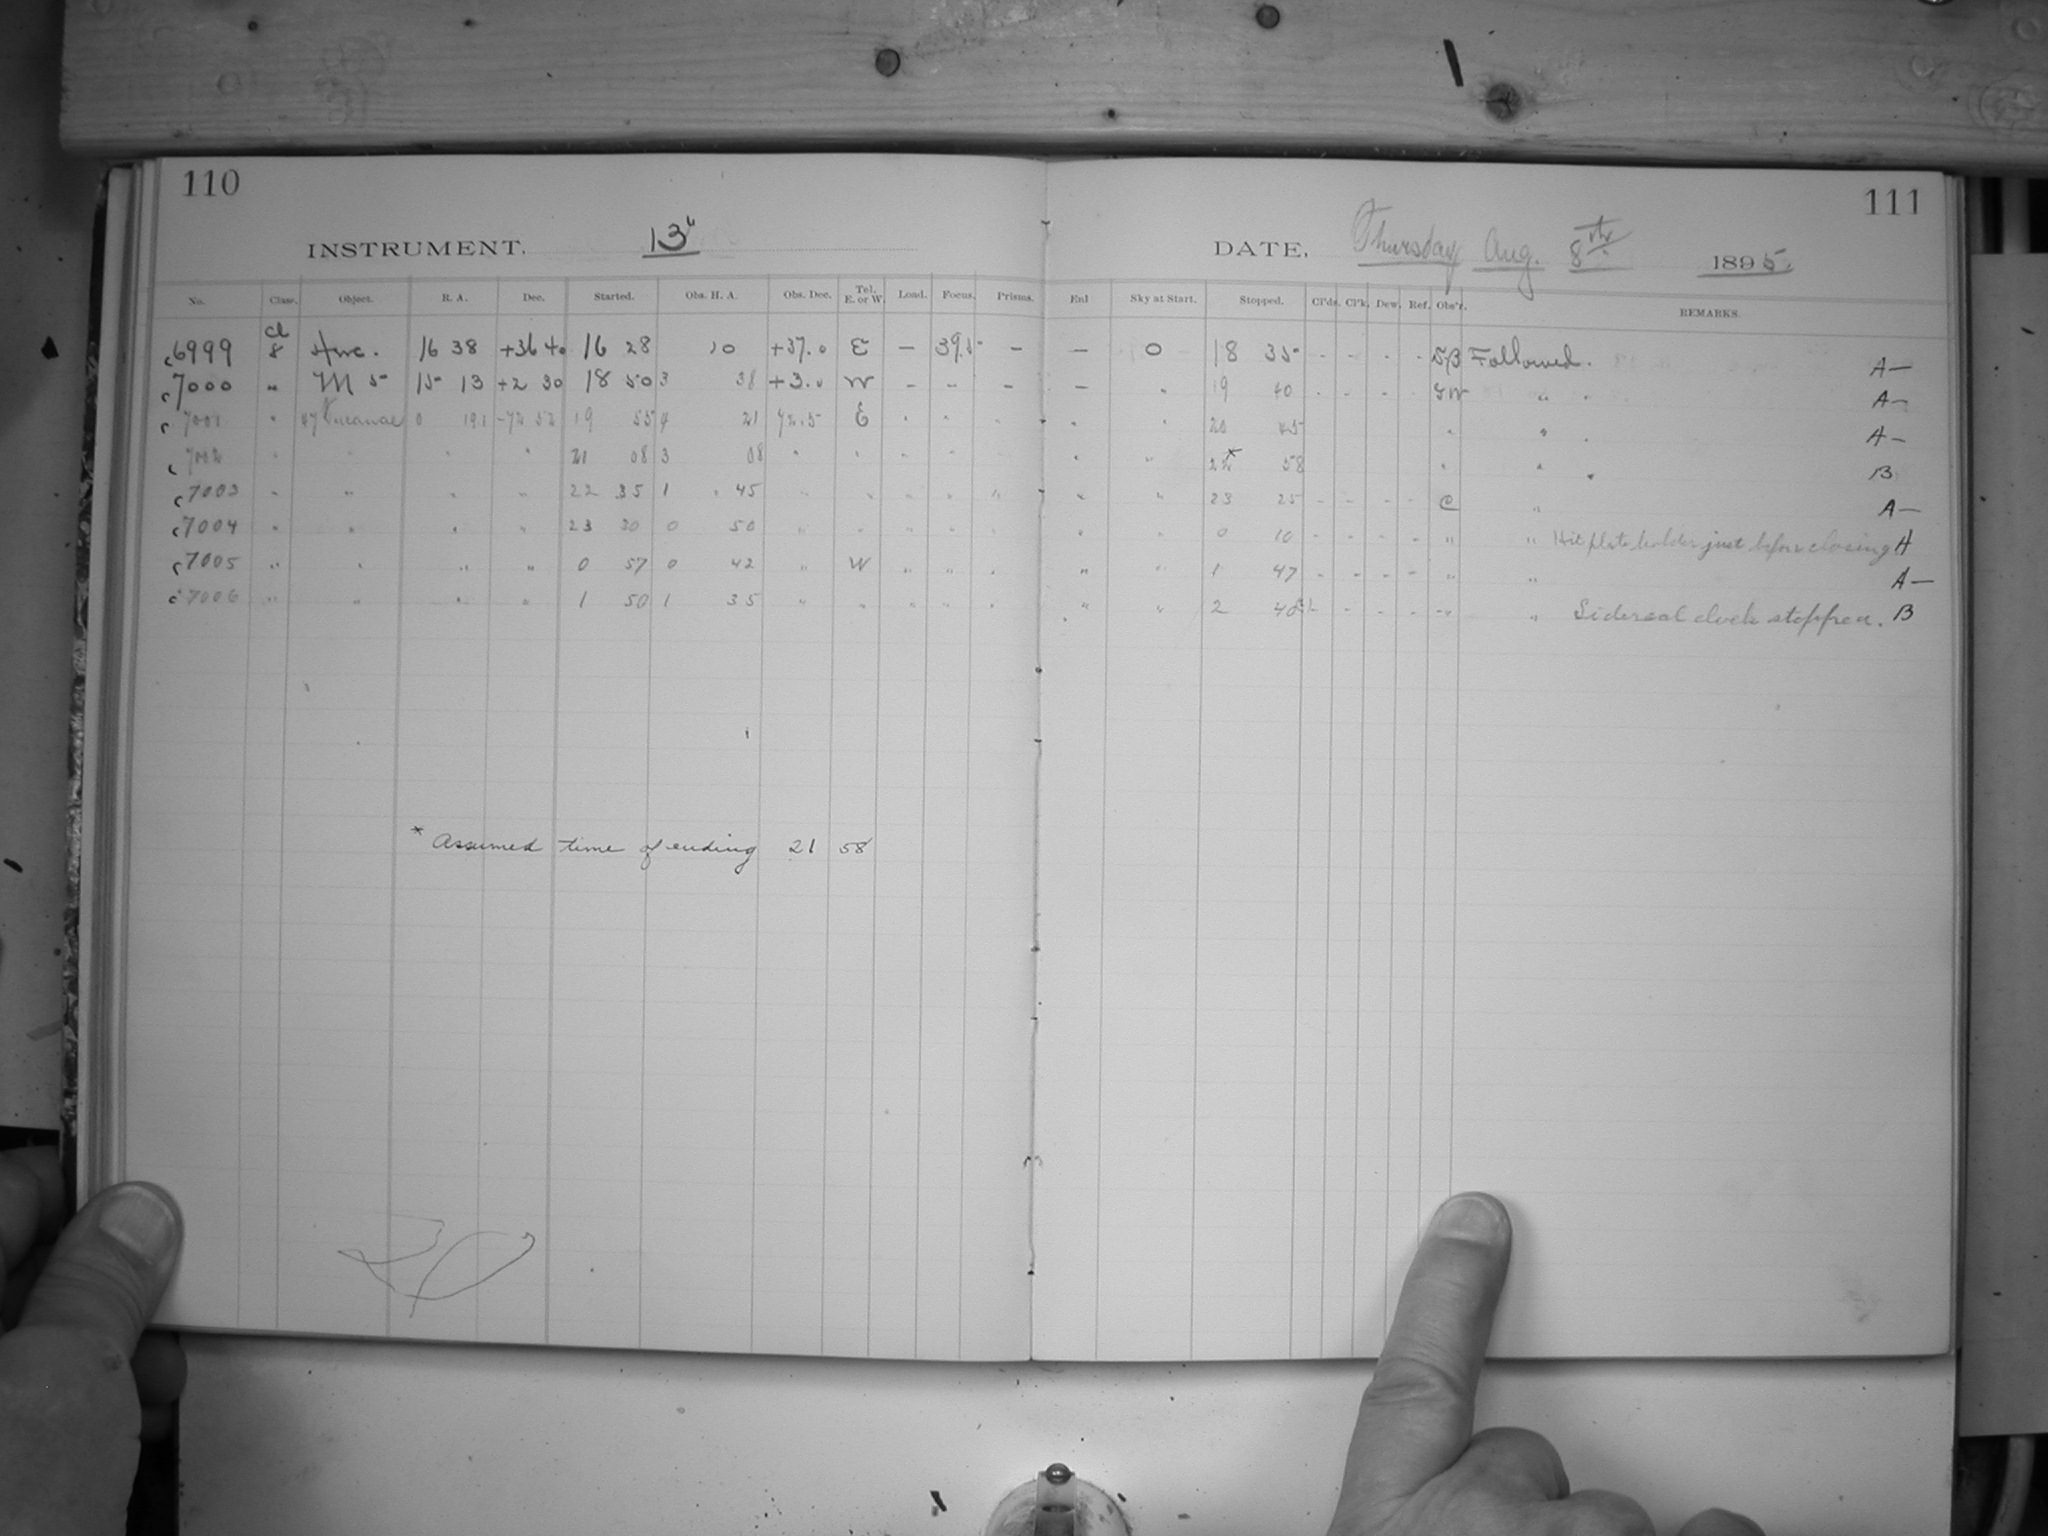 110
111
INSTRUMENT. 13"
DATE, Thursday Aug. 8th 1895.
No. Class. Object. R. A. Dec. Started. Obs. H. A. Obs. Dec. Tel. E. or W. Load. Focus. Prisms. Enl Sky at Start. Stopped. Cl'ds. Cl'k. Dew. Ref. Obs'r. REMARKS.
c6999 Cl 8 16 38 +36 40 16 28 10 +37.0 E — 39.5 — — 0 18 35 - - - - Followed. A—
c7000 " M 5 15 13 +2 30 18 50 3 38 +3.0 W - - - — " 19 40 - - - - " . A—
c 7001 " 47 Tucanae 0 19.1 -72 52 19 55 4 21 72.5 E " " " " " 20 45 " " . A—
c 7002 " " " " 21 08 3 08 " " " " " " " 22* 58 " " . B
c7003 " " " " 22 35 1 45 " " " " " " " 23 25 - - - - C " A—
c7004 " " " " 23 30 0 50 " " " " " " " 0 10 - - - - " " Hit plate holder just before closing A
c7005 " " " " 0 57 0 42 " W " " " " " 1 47 - - - - " " A—
c7006 " " " " 1 50 1 35 " " " " " " " 2 40 - - - - " " Sidereal clock stopped. B
* Assumed time of ending 21 58